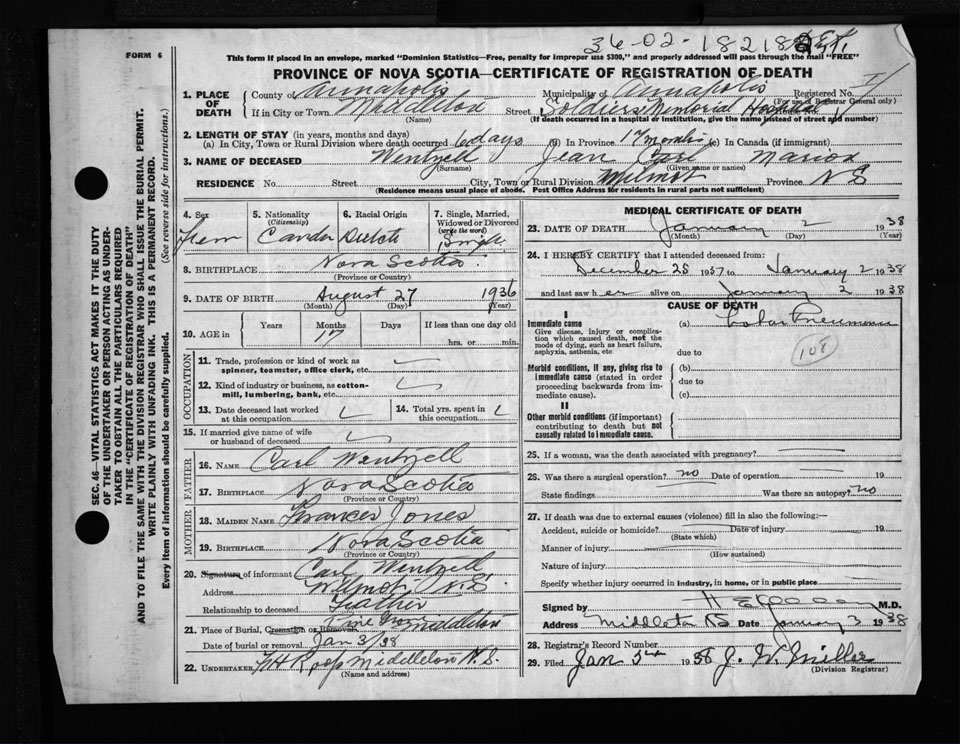 FORM 6
36-02-18218
This form if placed in an envelope, marked "Dominion Statistics—Free, penalty for improper use $300," and properly addressed will pass through the mail "FREE"
PROVINCE OF NOVA SCOTIA—CERTIFICATE OF REGISTRATION OF DEATH
1. PLACE OF DEATH
County of Annapolis Municipality of Annapolis Registered No.
(For use of Registrar General only)
If in City or Town Middleton Street Soldiers Memorial Hospital
(Name) (If death occurred in a hospital or institution, give the name instead of street and number)
2. LENGTH OF STAY (in years, months and days)
(a) In City, Town or Rural Division where death occurred 6 days (b) In Province 17 months (c) In Canada (if immigrant)
3. NAME OF DECEASED Wentzell Jean Carl Marion
(Surname) (Given name or names)
RESIDENCE No. Street City, Town or Rural Division Wilmot Province N S
(Residence means usual place of abode. Post Office Address for residents in rural parts not sufficient)
SEC. 46—VITAL STATISTICS ACT MAKES IT THE DUTY
OF THE UNDERTAKER OR PERSON ACTING AS UNDER-
TAKER TO OBTAIN ALL THE PARTICULARS REQUIRED
IN THE "CERTIFICATE OF REGISTRATION OF DEATH"
AND TO FILE THE SAME WITH THE DIVISION REGISTRAR WHO SHALL ISSUE THE BURIAL PERMIT.
WRITE PLAINLY WITH UNFADING INK. THIS IS A PERMANENT RECORD.
Every item of information should be carefully supplied. (See reverse side for instructions.)
4. Sex
Fem
5. Nationality
(Citizenship)
Canda
6. Racial Origin
Dutch
7. Single, Married,
Widowed or Divorced
(write the word)
Single
8. BIRTHPLACE Nova Scotia
(Province or Country)
9. DATE OF BIRTH August 27 1936
(Month) (Day) (Year)
10. AGE in Years Months Days If less than one day old
17 hrs. or min.
OCCUPATION
11. Trade, profession or kind of work as
spinner, teamster, office clerk, etc.
12. Kind of industry or business, as cotton-
mill, lumbering, bank, etc.
13. Date deceased last worked
at this occupation
14. Total yrs. spent in
this occupation
15. If married give name of wife
or husband of deceased
FATHER
16. NAME Carl Wentzell
17. BIRTHPLACE Nova Scotia
(Province or Country)
MOTHER
18. MAIDEN NAME Frances Jones
19. BIRTHPLACE Nova Scotia
(Province or Country)
20. Signature of informant Carl Wentzell
Address Wilmot N.S.
Relationship to deceased Feather
21. Place of Burial, Cremation or Removal Pine Grove Middleton
Date of burial or removal Jan 3/38
22. UNDERTAKER Roop Middleton N.S.
(Name and address)
MEDICAL CERTIFICATE OF DEATH
23. DATE OF DEATH January 2 1938
(Month) (Day) (Year)
24. I HEREBY CERTIFY that I attended deceased from:
December 25 1937 to January 2 1938
and last saw her alive on January 2 1938
CAUSE OF DEATH
I
Immediate cause
Give disease, injury or complica-
tion which caused death, not the
mode of dying, such as heart failure,
asphyxia, asthenia, etc
(a) Lobar Pneumonia
108
due to
Morbid conditions, if any, giving rise to
immediate cause (stated in order
proceeding backwards from im-
mediate cause).
(b)
due to
(c)
II
Other morbid conditions (if important)
contributing to death but not
causally related to immediate cause.
25. If a woman, was the death associated with pregnancy?
26. Was there a surgical operation? no Date of operation 19
State findings Was there an autopsy? no
27. If death was due to external causes (violence) fill in also the following:—
Accident, suicide or homicide? Date of injury 19
(State which)
Manner of injury
(How sustained)
Nature of injury
Specify whether injury occurred in industry, in home, or in public place
Signed by M.D.
Address Middleton NS Date January 3 1938
28. Registrar's Record Number
29. Filed Jan 1938 J. W. Miller
(Division Registrar)